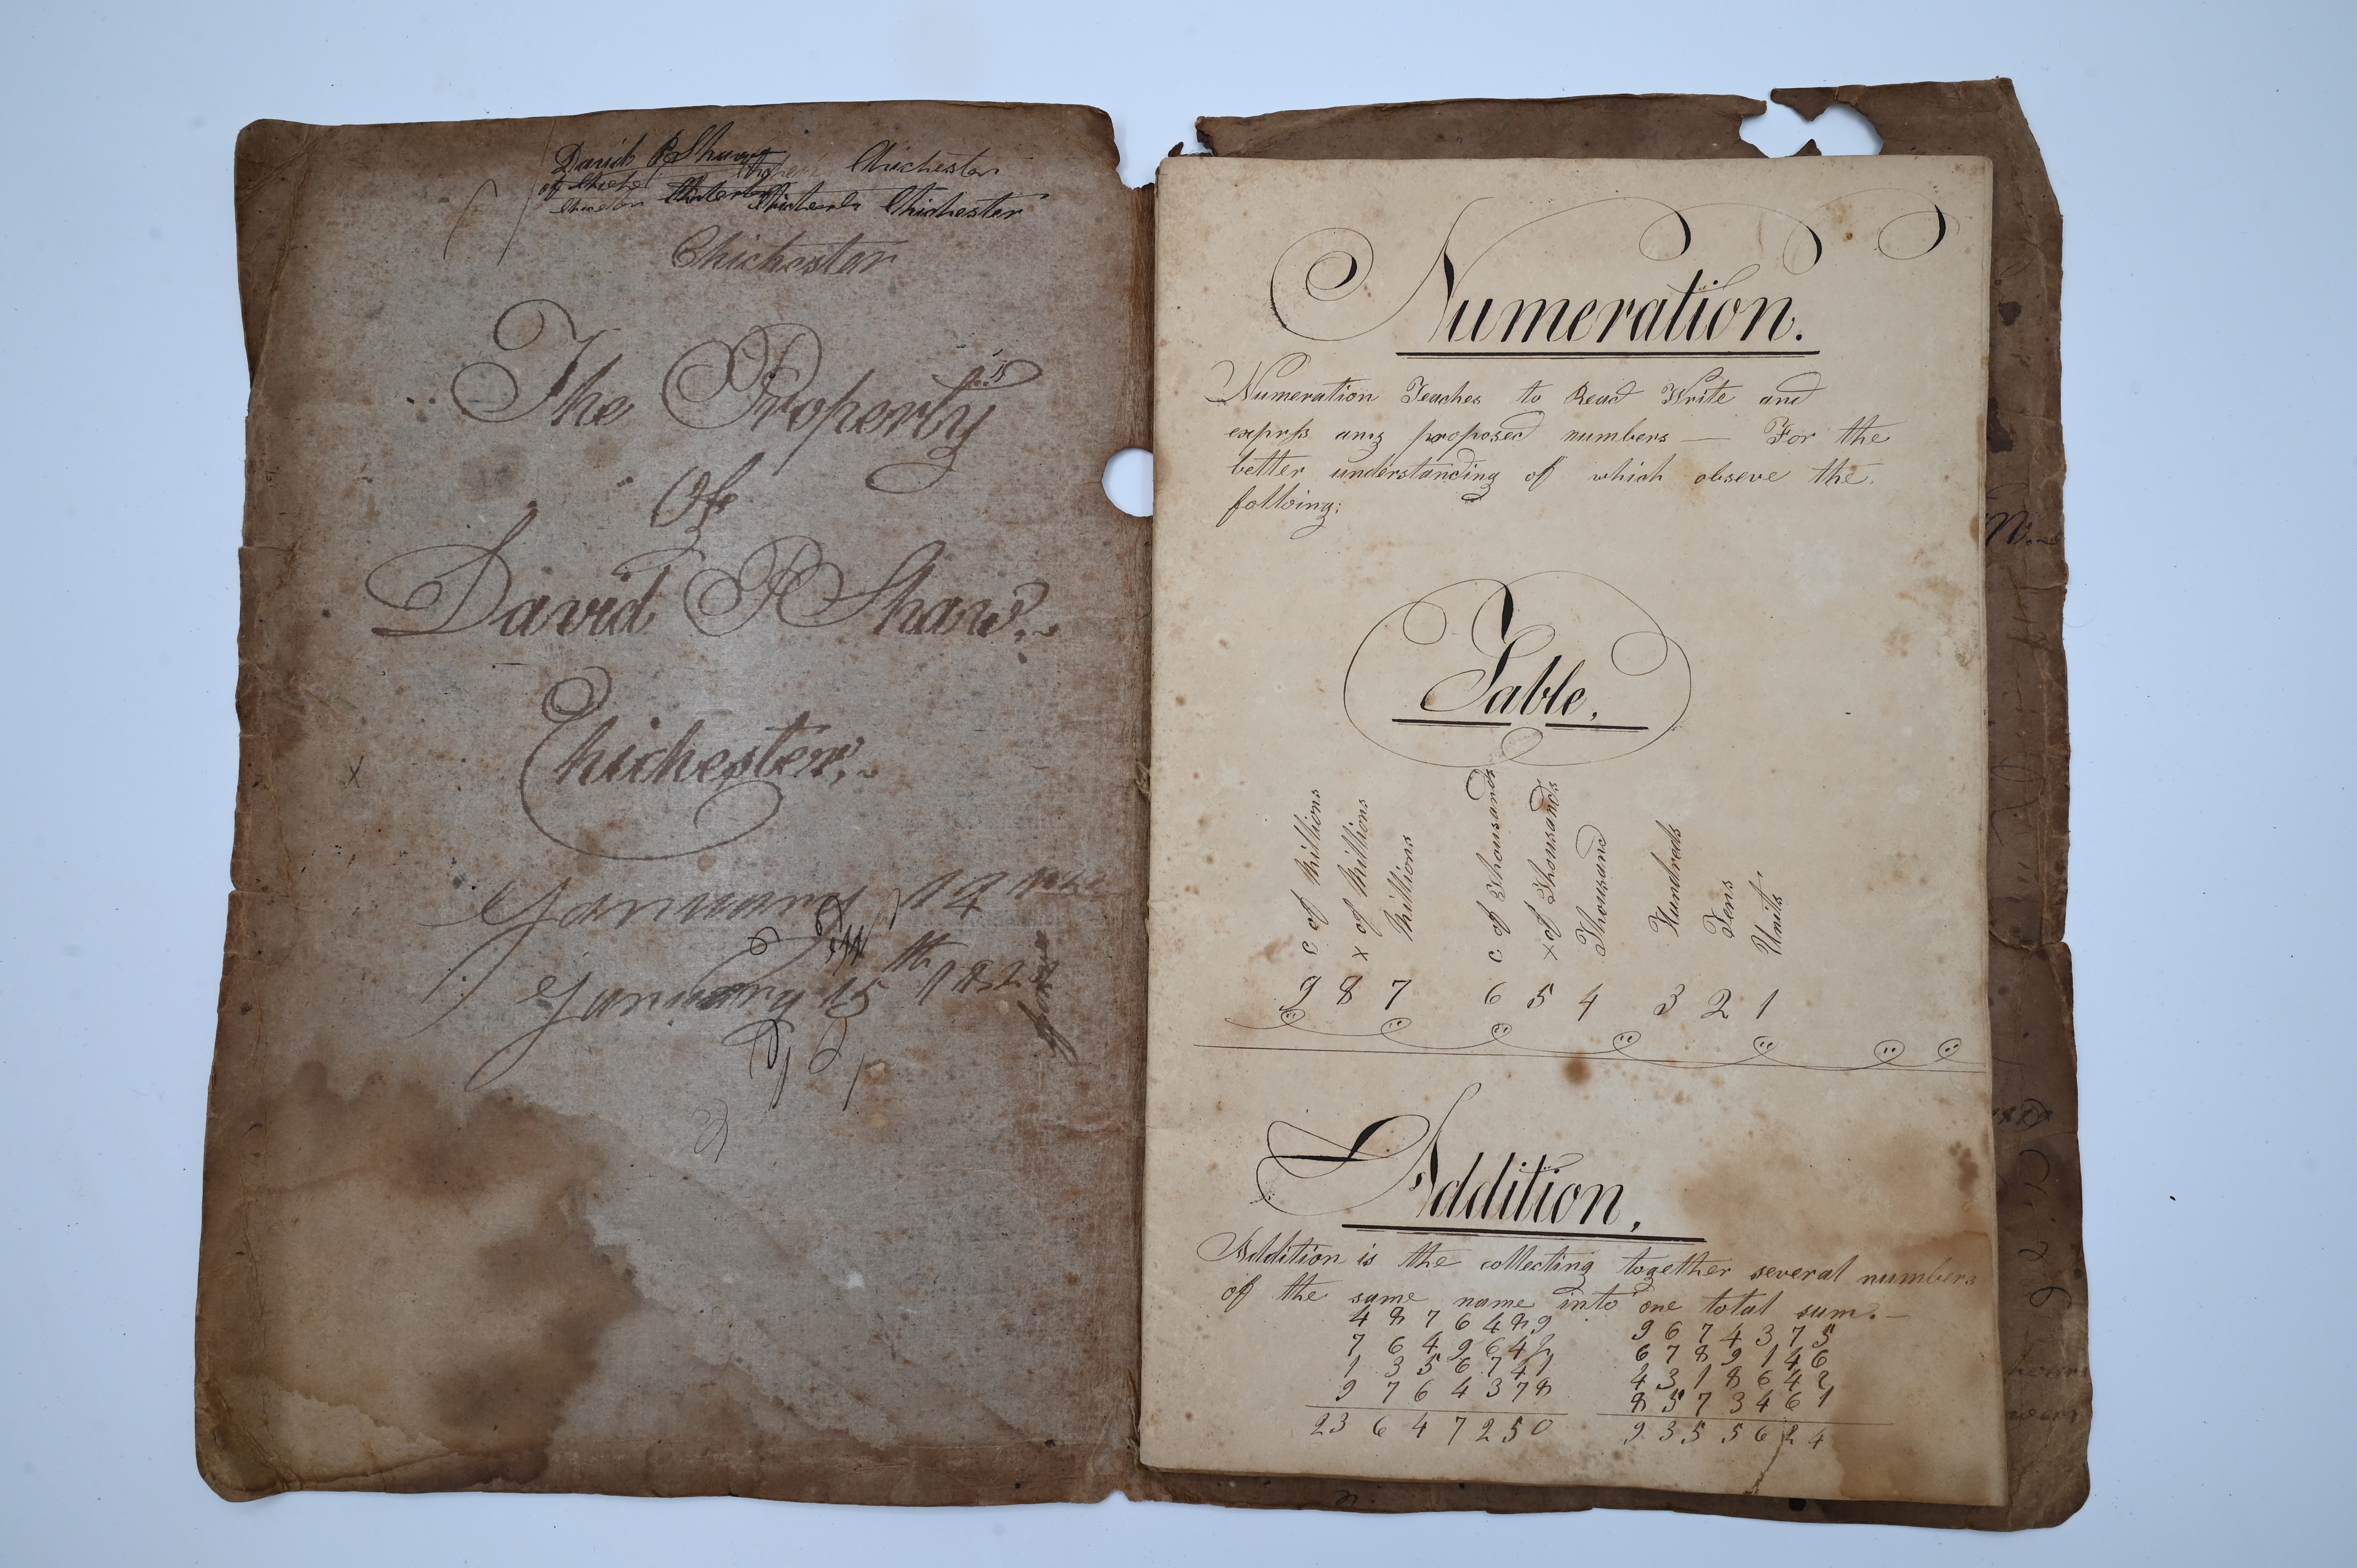 David P Shaw
Chichester
of
Chichester
Chichester
The Property
Of
David P Shaw.
Chichester.
January 14
January 15th 1822
Numeration.
Numeration Teaches to Read Write and
exprſs any proposed numbers — For the
better understanding of which obseve the
folloing:
Table.
C of Millions
X of Millions
Millions
C of Thousands
X of Thousands
Thousand
Hundreds
Tens
Units
9 8 7 6 5 4 3 2 1
Addition.
Addition is the collecting together several numbers
of the same name into one total sum.—
4 8 7 6 4 8 9 9 6 7 4 3 7 5
7 6 4 9 6 4 2 6 7 8 9 1 4 6
1 3 5 6 7 4 1 4 3 1 8 6 4 2
9 7 6 4 3 7 8 8 5 7 3 4 6 1
23 6 4 7 2 5 0 9 3 5 5 6 2 4